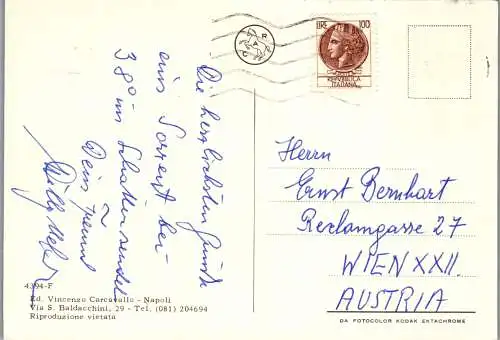 Die herzlichsten Grüsse
aus Sorrent bei
38° im Schatten sendet
Dein Freund
Willy
LIRE 100
REPVBBLICA
ITALIANA
Herrn
Ernst Bernhart
Reclamgasse 27
WIEN XXII.
AUSTRIA
4394-F
Ed. Vincenzo Carcavallo - Napoli
Via S. Baldacchini, 29 - Tel. (081) 204694
Riproduzione vietata
DA FOTOCOLOR KODAK EKTACHROME